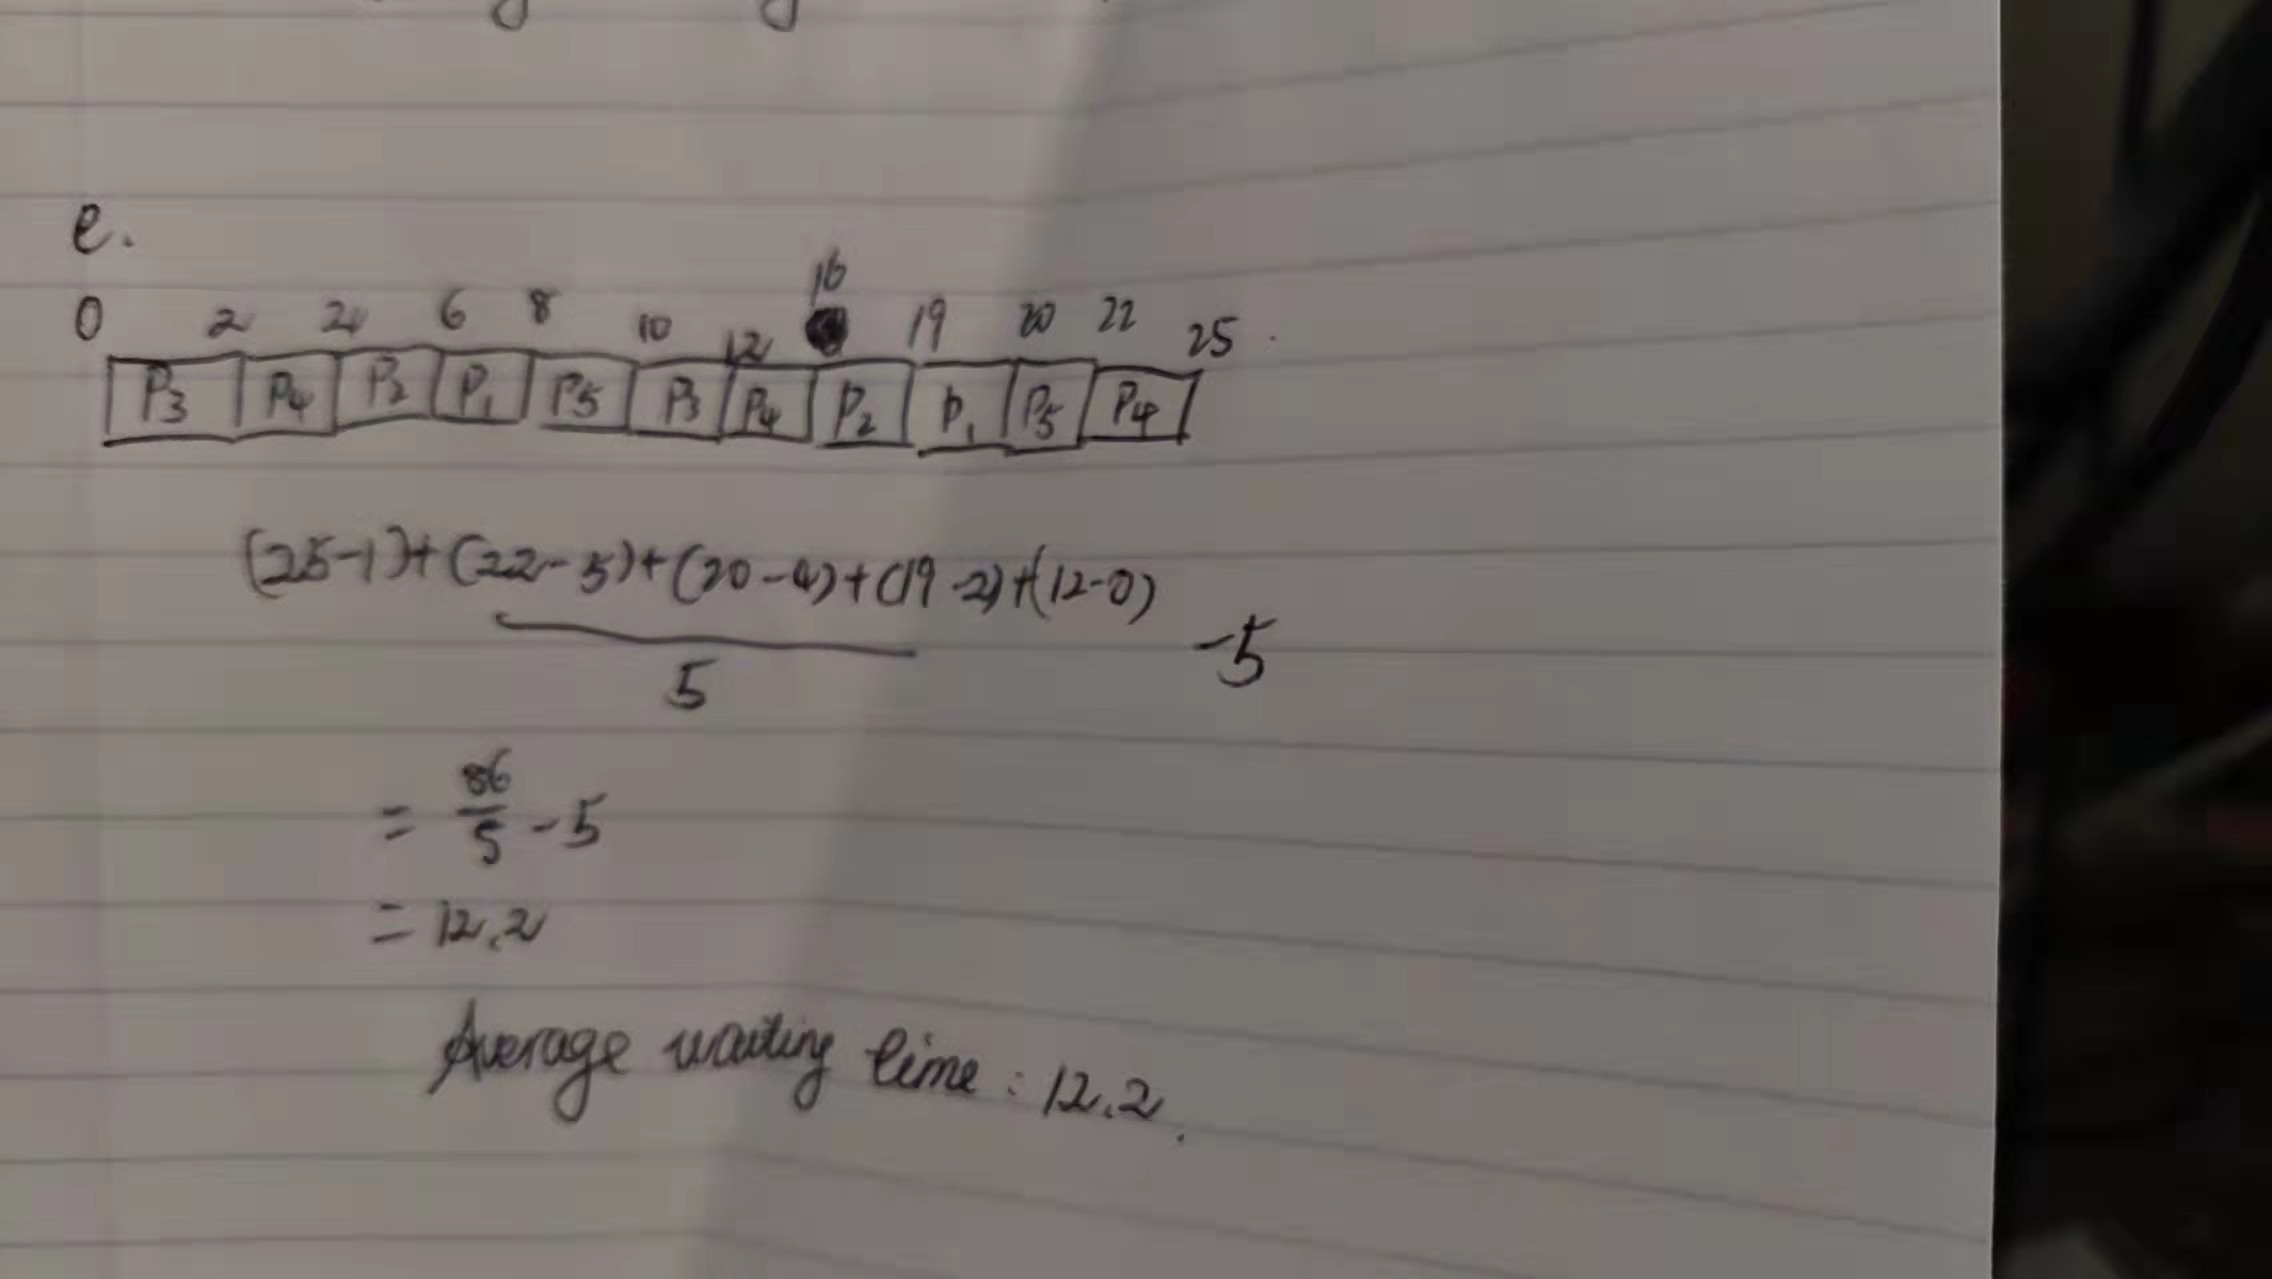 e.
0 2 4 6 8 10 12 16 19 20 22 25
P3 P4 P2 P1 P5 P3 P4 P2 P1 P5 P4
(25-1)+(22-5)+(20-4)+(19-2)+(12-0)
5
-5
= 86/5 - 5
= 12.2
Average waiting time: 12.2.